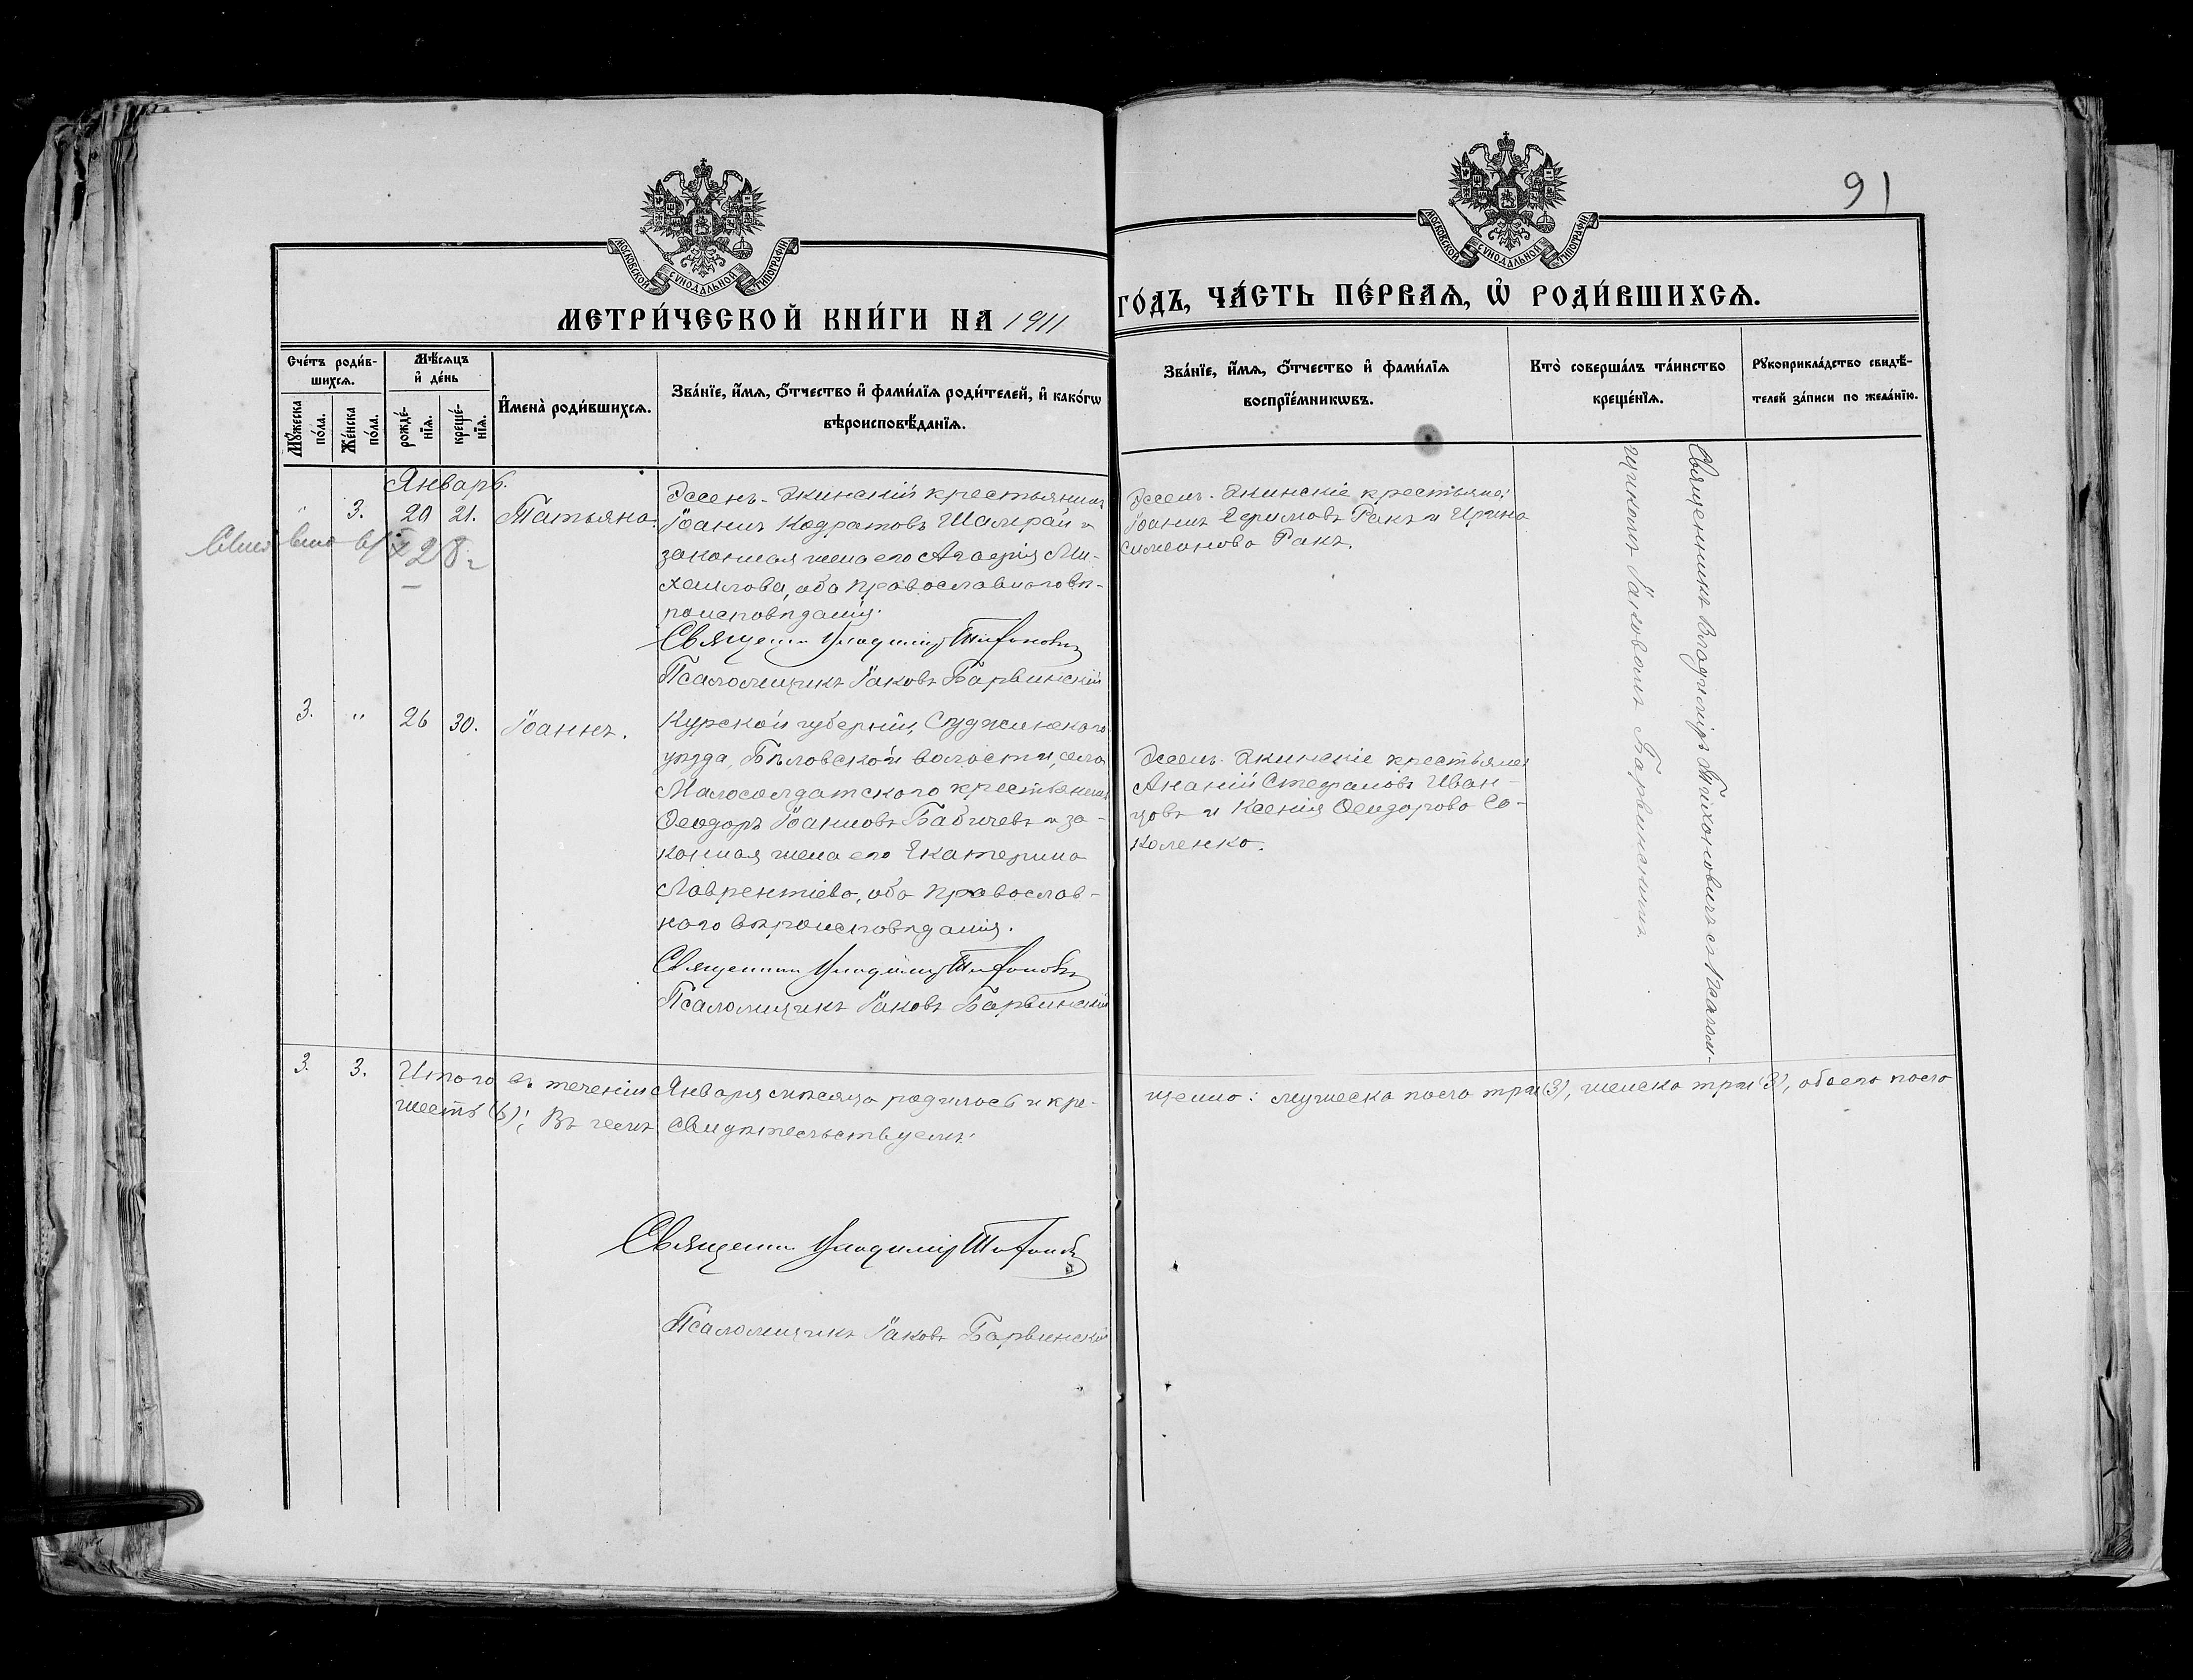 91
МОСКОВСКОЙ СѴНОДАЛЬНОЙ ТИПОГРАФІИ
МОСКОВСКОЙ СѴНОДАЛЬНОЙ ТИПОГРАФІИ
МЕТРИ́ЧЕСКОЙ КНИ́ГИ НА 1911 ГО́ДЪ, ЧА́СТЬ ПЕ́РВАѦ, Ѡ҆ РОДИ́ВШИХСѦ.
Сче́тъ роди́в-
шихсѧ.
Мꙋ́жеска по́ла.
Же́нска по́ла.
Мѣ́сѧцъ
и҆ де́нь
рожде́-
нїѧ.
креще́-
нїѧ.
И҆мена̀ роди́вшихсѧ.
Зва́нїе, и҆́мѧ, ѻ҆́тчество и҆ фами́лїѧ роди́телей, и҆ како́гѡ
вѣроисповѣ́данїѧ.
Зва́нїе, и҆́мѧ, ѻ҆́тчество и҆ фами́лїѧ
воспрїе́мникѡвъ.
Кто̀ соверша́лъ та́инство
креще́нїѧ.
Рꙋкоприкла́дство свидѣ́-
телей за́писи по жела́нїю.
Январь.
" 3. 20 21. Татьяна.
Эссенъ-Экинскій крестьянинъ
Іоаннъ Кодратовъ Шамрай и
законная жена его Агафія Ми-
хаилова, оба православнаго вѣ-
роисповѣданія.
Священник Владиміръ Тихонович
Псаломщикъ Іаковъ Барвинскій
Эссенъ-Экинскіе крестьяне:
Іоаннъ Ефимовъ Ракъ и Ирина
Симеонова Ракъ.
Священникъ Владиміръ Тихоновичъ съ псалом-
щикомъ Іаковомъ Барвинскимъ.
28 г
3. " 26 30. Іоаннъ.
Курской губерніи, Суджанскаго
уѣзда, Бѣловской волости, села
Малосолдатскаго крестьянинъ
Ѳеодоръ Іоанновъ Бабичевъ и за-
конная жена его Екатерина
Лаврентіева, оба православ-
наго вѣроисповѣданія.
Священник Владиміръ Тихонович
Псаломщикъ Іаковъ Барвинскій
Эссенъ-Экинскіе крестьяне
Ананій Стефановъ Иван-
цовъ и Ксенія Ѳеодорова Со-
коленко.
3. 3. Итого въ теченіи Января мѣсяца родилось и кре-
щено: мужеска пола три (3), женска три (3), обоего пола
шесть (6); Въ чемъ свидѣтельствуемъ:
Священник Владиміръ Тихонович
Псаломщикъ Іаковъ Барвинскій